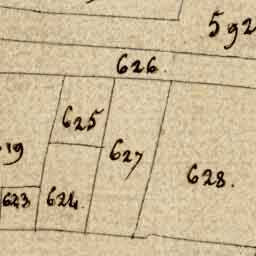 592
626.
625
627
19
628.
623
624.